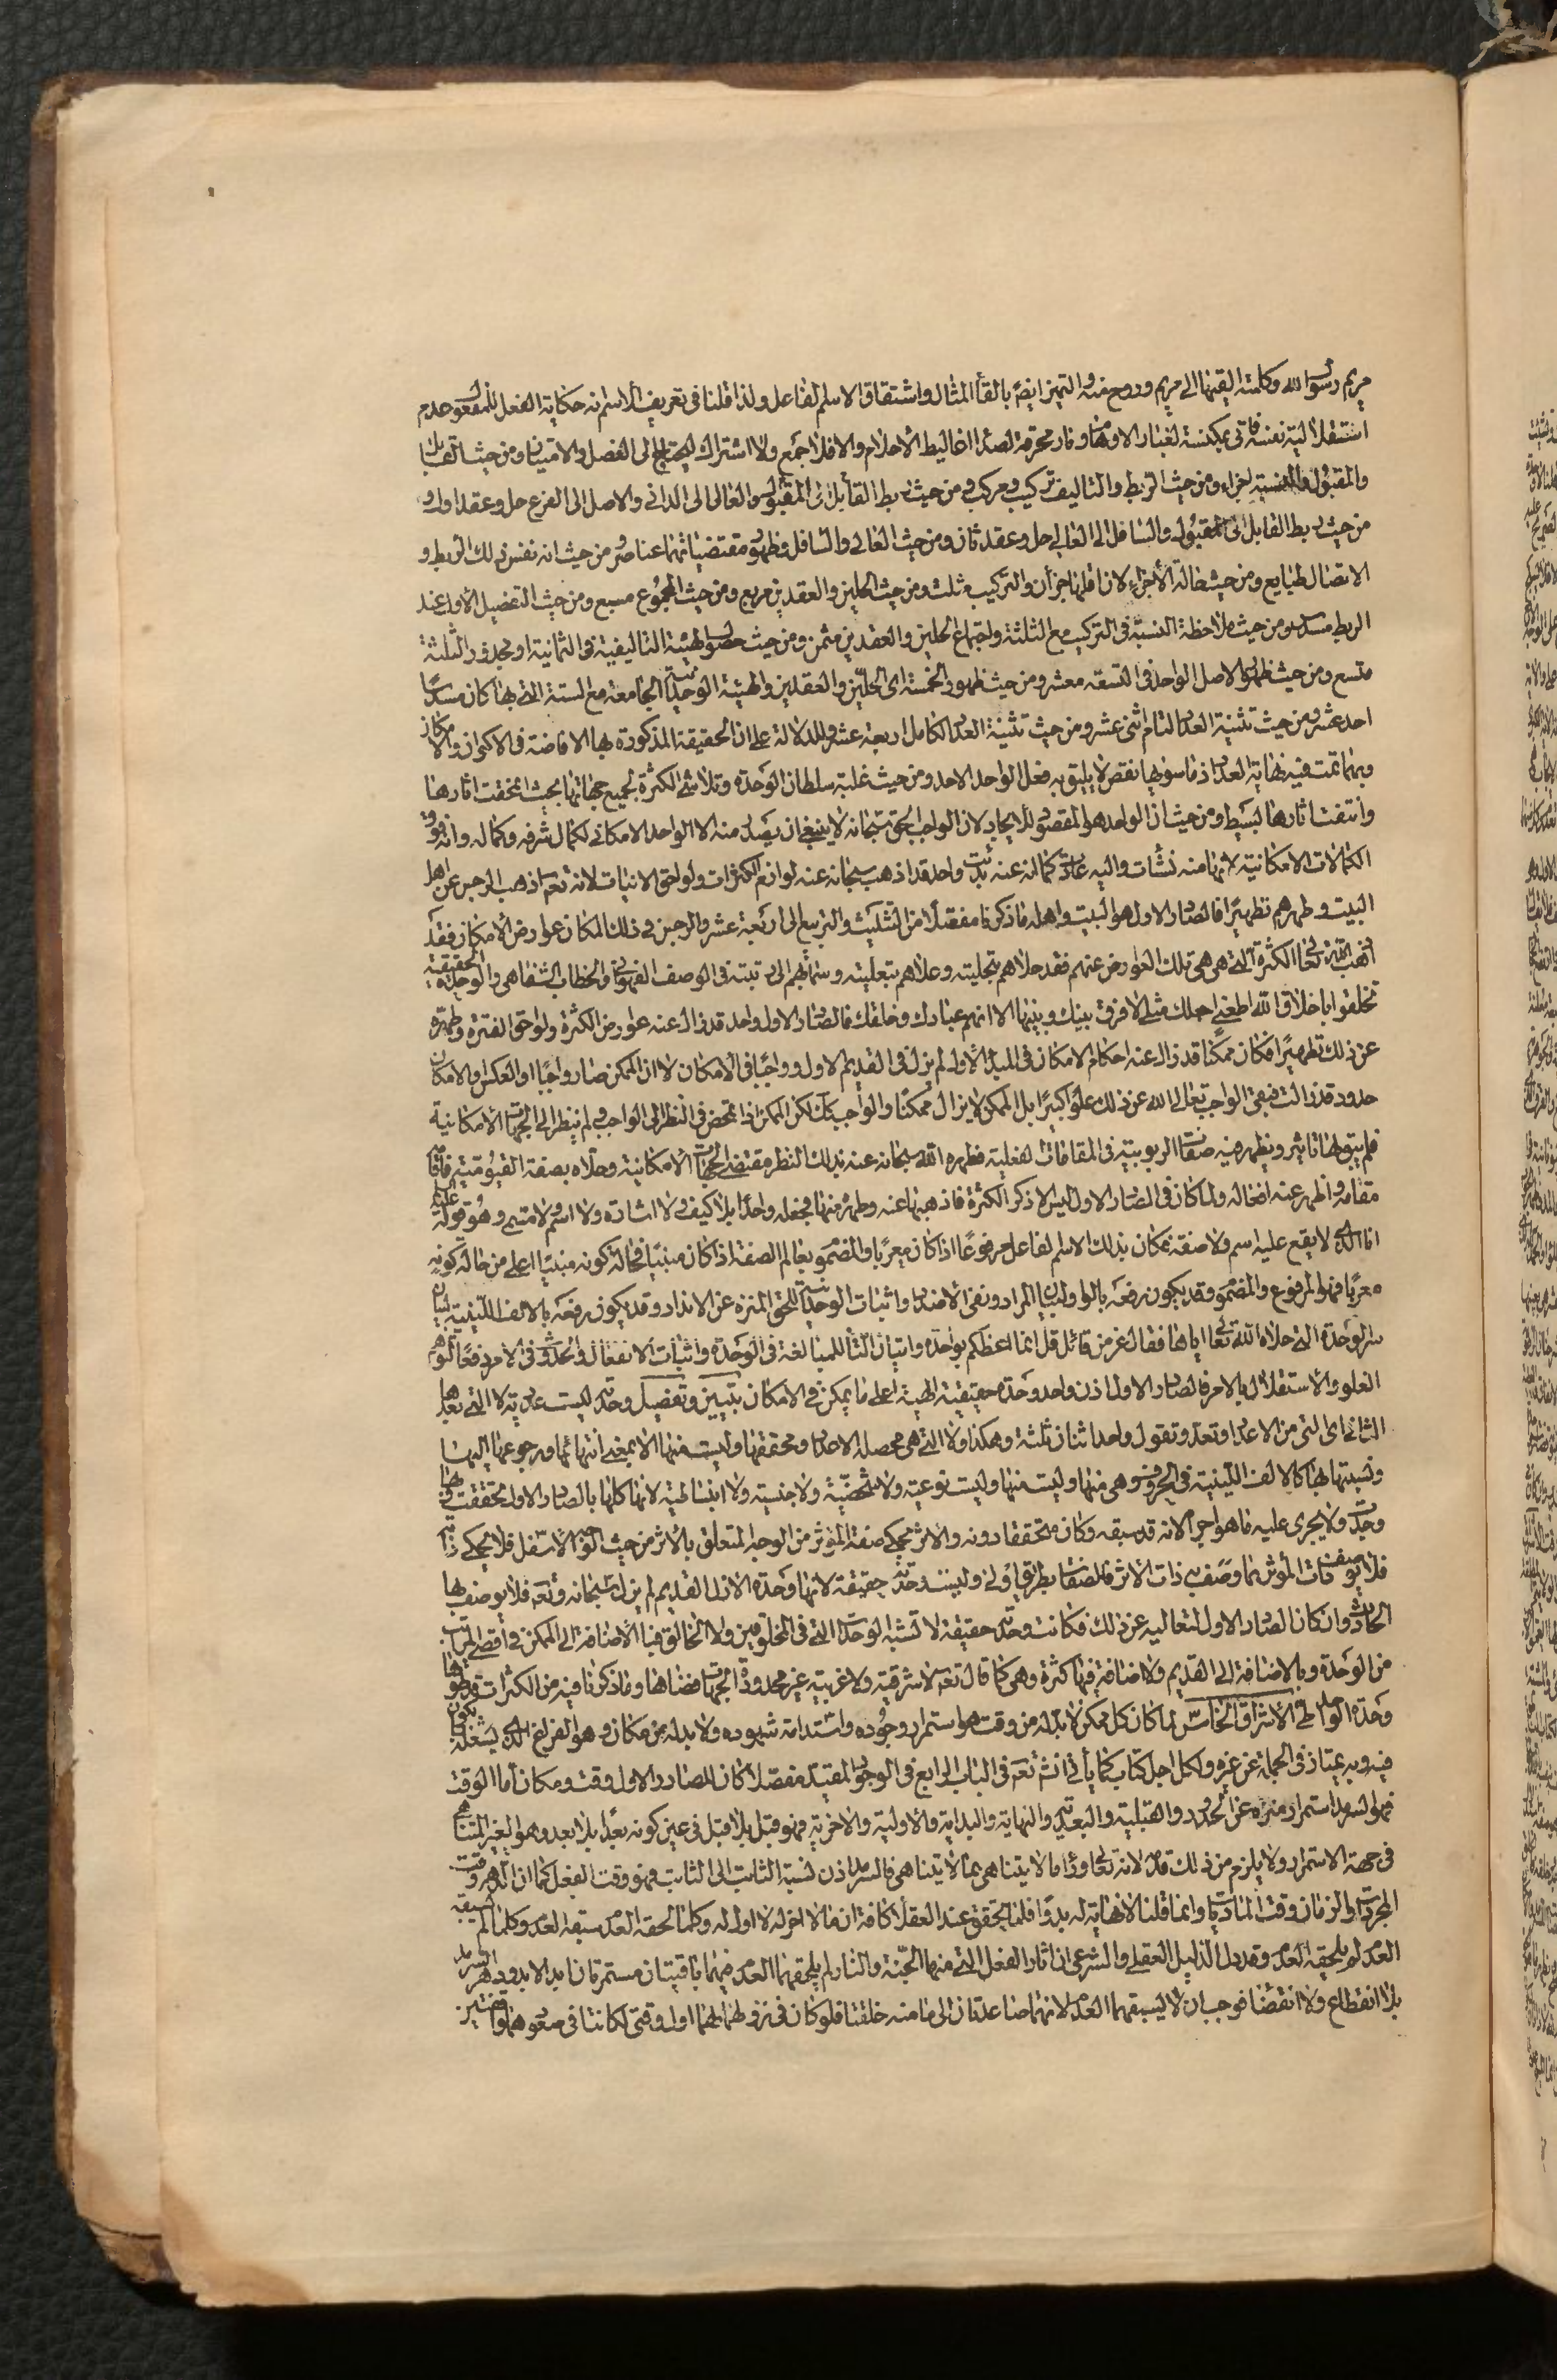 مريم رسول الله وكلمته القيها الى مريم وروح منه والتميز ايضا بالقاء المثال واشتقاق الاسم الفاعل ولذا قلنا في تعريف الاسم انه حكاية الفعل للمفعول وعدم
استقلالية نفسه فاتى بمكنسة لغبار الاوهام ونار محرقة لصدا اغاليط الاحلام والا فلا جمع ولا اشتراك ليحتاج الى الفصل والامتياز ومن حيث القابل
والمقبول والنسبة اجزاء ومن حيث الربط والتاليف تركيب ومركب ومن حيث ربط القابل الى المقبول والعالى الى الدانى والاصل الى الفرع حل وعقد اول و
من حيث ربط القابل الى المقبول والسافل الى العالى حل وعقد ثان ومن حيث العالى والسافل وظهور مقتضياتهما عناصر ومن حيث انه نفس ذلك الربط و
الاتصال طبايع ومن حيث حالة الاجزاء لان اقلها جزان والتركيب مثلث ومن حيث الحلين والعقدين مربع ومن حيث المجموع مسبع ومن حيث التفصيل الاول عند
الربط مسدس ومن حيث ملاحظة النسبة في التركيب مع الثلثة واجتماع الحلين والعقدين مثمن ومن حيث حصول الهيئة التاليفية في الثمانية او مجذور الثلثة
متسع ومن حيث ظهور الاصل الواحد في التسعة معشر ومن حيث ظهور الخمسة اى الحلين والعقدين والهيئة الوحدانية الجامعة مع الستة التي بها كان مسدسا
احد عشر ومن حيث تثنية العدد التام اثنى عشر ومن حيث تثنية العدد الكامل اربعة عشر وللدلالة على ان الحقيقة المذكورة بها الافاضة في الاكوان والامكان
وبهما تمت فيه نهاية العدد اذ ما سويها نقص لا يليق به فعل الواحد الاحد ومن حيث غلبة سلطان الوحدة وتلاشى الكثرة بجميع جهاتها بحيث انمحقت اثارها
وانتفت اثارها بسيط ومن حيث ان الواحد هو المقصود للايجاد لان الواجب الحق سبحانه لا ينبغى ان يصدر منه الا الواحد الامكانى لكمال شرفه وكماله وانه فوق
الكمالات الامكانية لانها منه نشأت واليه عادت كما انه عنه بدئت واحد قد اذهب سبحانه عنه لوازم الكثرات ولواحق الانيات لانه تعم اذهب الرجس عن اهل
البيت وطهرهم تطهيرا فالصادر الاول هو البيت واهله ما ذكرنا مفصلا من التثليث والتربيع الى اربعة عشر والرجس في ذلك المكان عوارض الامكان فقد
اذهب الله تعالى الكثرة التى هى تلك العوارض عنهم فقد حلاهم بتجليته وعلاهم بتعليته وسما بهم الى رتبته في الوصف الفهوانى والخطاب الشفاهى والوحدة الحقيقية
تخلقوا باخلاق الله اطعنى اجعلك مثلى لا فرق بينك وبينها الا انهم عبادك وخلقك فالصادر الاول واحد قد زال عنه عوارض الكثرة ولواحق الفترة وطهره
عن ذلك تطهيرا فكان ممكنا قد زال عنه احكام الامكان في المبدا الاول لم يزل في القديم الاول وواجبا في الامكان لا ان الممكن صار واجبا او العكس والامكان
حدود قد زالت فبقى الواجب تعالى الله عن ذلك علوا كبيرا بل الممكن لا يزال ممكنا والواجب كك لكن الممكن اذا تمحض في النظر الى الواجب ولم ينظر الى الجهات الامكانية
فلم يبق لها تاثير ويظهر فيه صفات الربوبية في المقامات الفعلية فطهره الله سبحانه عنه بذلك النظر مقتضى الجهات الامكانية وحلاه بصفة القيومية فاقامه
مقامه واظهر عنه افعاله ولما كان في الصادر الاول ليس الا ذكر الكثرة فاذهبها عنه وطهره منها فجعله واحدا بلا كيف ولا اشارة ولا اسم ولا متسم وهو قوله عليه السلام
انا الذى لا يقع عليه اسم ولا صفة فكان بذلك الاسم الفاعل مرفوعا اذا كان معربا والمضموم بعالم الصفة اذا كان مبنيا فحالة كونه مبنيا اعلى من حالة كونه
معربا فهو المرفوع والمضموم وقد يكون رفعه بالواو لبيان المراد ونفى الاضداد واثبات الوحدانية للحق المنزه عن الانداد وقد يكون رفعه بالالف اللينية لبيان
سر الوحدة التى حلاه الله تعالى اياها فقال عز من قائل قل انما اعظكم بواحدة واتيان التاء للمبالغة في الوحدة واثبات الانفعال والحدوث في الامر دفعا لتوهم
العلو والاستقلال بالامر فالصادر الاول اذن واحد وحدة حقيقية الهية اعلى ما يمكن في الامكان بتبيين وتفصيل وحدته ليست عددية لا التى يعدها
الثانى اى التى من الاعداد وتعد وتقول واحد اثنان ثلثة وهكذا ولا التى هى محصلة الاعداد ومحققها وليست منها الا بمعنى انتهائها ورجوعها اليها
ونسبتها اليها كالالف اللينية في الحروف وهى منها وليست منها وليست نوعية ولا شخصية ولا جنسية ولا انبساطية لانها كلها بالصادر الاول تحققت فيها
وجدت ولا يجرى عليه ما هو اجراه لانه قد سبقه وكان متحققا دونه والاثر يحكى صفة المؤثر من الوجه المتعلق بالاثر من حيث الوجه الاسفل فلا يحكى ذاته
فلا يوصف ذات المؤثر بما وصف به ذات الاثر فالصفات بطريق اولى وليست وحدته حقيقة لانها وحدة الازل القديم لم يزل سبحانه وتعم فلا يوصف بها
الحادث وان كان الصادر الاول المتعاليه عن ذلك فكانت وحدته حقيقة لا تشبه الوحدات التى في المخلوقين ولا الخالق فبالاضافة الى الممكن في اقصى المراتب
من الوحدة وبالاضافة الى القديم ولا اضافة فيها كثرة وهى كما قال تعم لا شرقية ولا غربية غير محدودة الجهات فضاها وما ذكرنا فيه من الكثرات
وحدة الاشراق الخامس لما كان كل ممكن لا بد له من وقت هو استمرار وجوده واستدامة شهوده ولا بد له من مكان وهو الفراغ الذى يشغله بكونه
فيه وبه يمتاز في الجملة عن غيره ولكل اجل كتاب كما يأتى انش تعم في الباب الرابع في الوجود المقيد مفصلا كان للصادر الاول وقت ومكان اما الوقت
فهو السرمد استمرار منزه عن الحدود والقبلية والبعدية والنهاية والبداية والاولية والاخرية فهو قبل بلا قبل في عين كونه بعدا بلا بعد وهو الغير المتناهى
في جهة الاستمرار ولا يلزم من ذلك قدم لانه تعالى وراء ما لا يتناهى بما لا يتناهى فالسرمد اذن نسبة الثابت الى الثابت فهو وقت الفعل كما ان الدهر وقت
المجردات والزمان وقت الماديات وانما قلنا لا نهاية له بدوا فلما تحقق عند العقلا كافة ان ما لا اخر له لا اول له وكلما لحقه العدم سبقه العدم وكلما لم يسبقه
العدم لم يلحقه العدم وقد دل الدليل العقلى والشرعى ان اثار الفعل التى منها الجنة والنار لم يلحقهما العدم فهما باقيتان مستمرتان ابد الابد ودهر السرمد
بلا انقطاع ولا انقضاء فوجب ان لا يسبقهما العدم لانهما صاعدتان الى ما منه خلقتا فلو كان في نزولهما لهما اول وقتى لكانتا في صعودهما